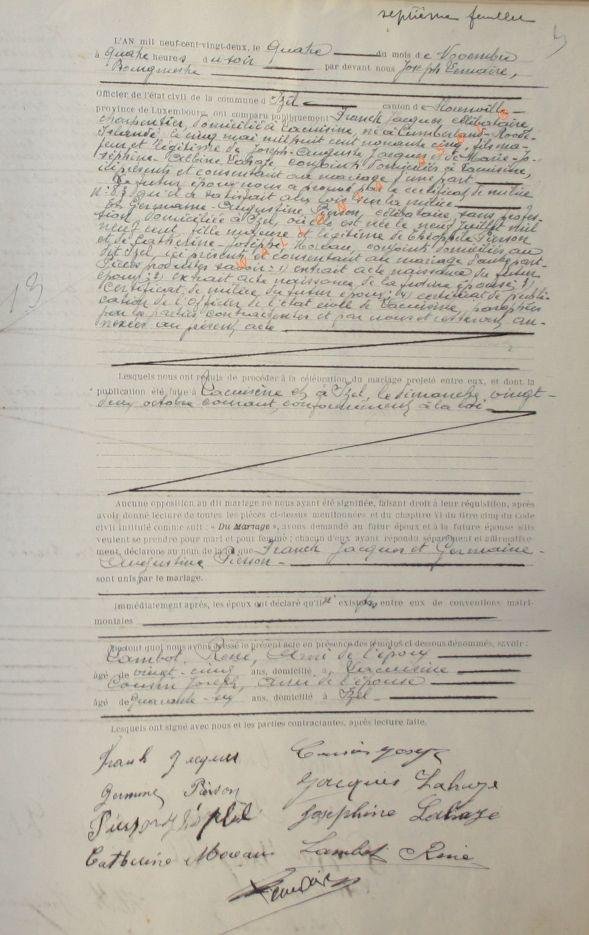 septième feuillet
L'AN mil neuf-cent-vingt-deux, le Quatre du mois de Novembre
à quatre heures du soir
Bourgmestre par devant nous Joseph Lemaire,
Officier de l'état civil de la commune d'Izel canton de Florenville
province de Luxembourg, ont comparu publiquement Franck Jacques, célibataire,
charpentier, domicilié à Lacuisine, né à Cumberland - Rhode-
Islande, le cinq mai mil huit cent nonante cinq, fils ma-
jeur et légitime de Joseph-Auguste Jacques et de Marie-Jo-
séphine-Albine Lahaye, conjoints domiciliés à Lacuisine,
ici présents et consentant au mariage, d'une part
Le futur époux nous a prouvé par le certificat de milice
qu'il a satisfait aux lois sur la milice
Et Germaine-Augustine Pierson, célibataire, sans profes-
sion, domiciliée à Izel, où elle est née le neuf Juillet mil
neuf cent, fille majeure et légitime de Théophile Pierson
et de Catherine-Joseph Moreau, conjoints domiciliés au
dit Izel, ici présents et consentant au mariage d'autre part
Pièces produites savoir: 1) extrait acte naissance du futur
époux; 2) extrait acte naissance de la future épouse; 3)
certificat de milice du futur époux; 4) certificat de publi-
cation de l'officier de l'état civil de Lacuisine, paraphés
par les parties contractantes et par nous et resteront an-
nexées au présent acte
13
Lesquels nous ont requis de procéder à la célébration du mariage projeté entre eux, et dont la
publication été faite à Lacuisine et à Izel, le dimanche vingt-
deux octobre courant, conformément à la loi
Aucune opposition au dit mariage ne nous ayant été signifiée, faisant droit à leur réquisition, après
avoir donné lecture de toutes les pièces ci-dessus mentionnées et du chapitre VI du titre cinq du code
civil intitulé comme suit : « Du Mariage », avons demandé au futur époux et à la future épouse s'ils
veulent se prendre pour mari et pour femme ; chacun d'eux ayant répondu séparément et affirmative-
ment, déclarons au nom de la loi que Franck Jacques et Germaine-
Augustine Pierson
sont unis par le mariage.
Immédiatement après, les époux ont déclaré qu'il n'existe pas entre eux de conventions matri-
moniales
De tout quoi nous avons dressé le présent acte en présence des témoins ci-dessous dénommés, savoir :
Lambot, René, ami de l'époux
âgé de vingt-cinq ans, domicilié à Lacuisine
Cousin Joseph, ami de l'épouse
âgé de quarante-six ans, domicilié à Izel
Lesquels ont signé avec nous et les parties contractantes, après lecture faite.
Frank Jacques Cousin Joseph
Germaine Pierson Jacques Lahaye
Pierson Théophile Josephine Lahaye
Catherine Moreau Lambot René
Lemaire